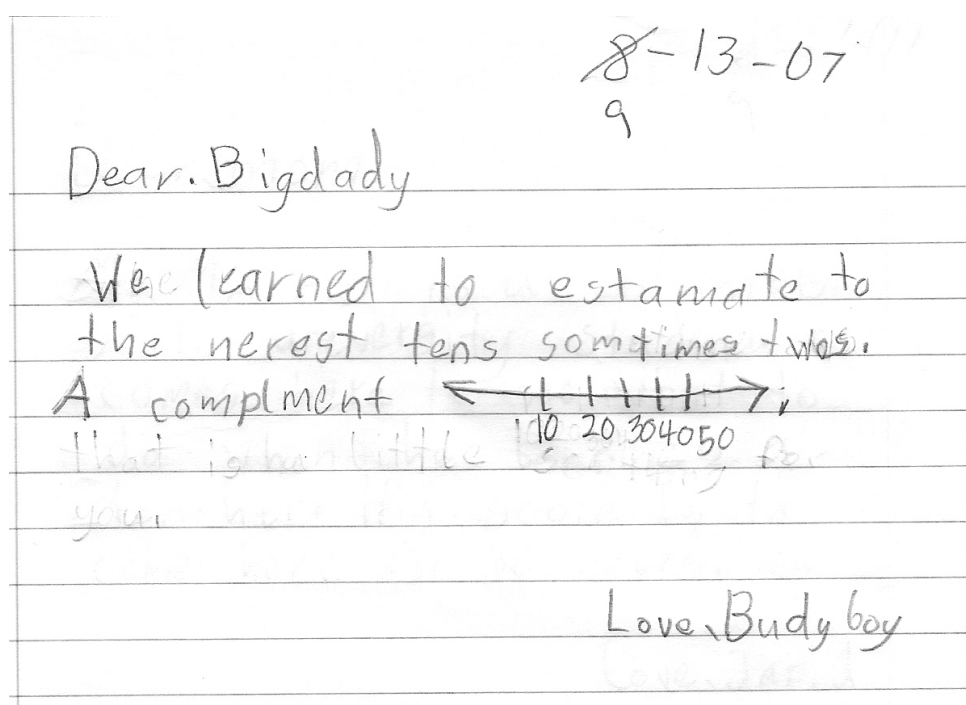 8-13-07
9
Dear. Bigdady
We learned to estamate to
the nerest tens somtimes twos.
A complment
10 20 30 40 50
Love, Budy boy